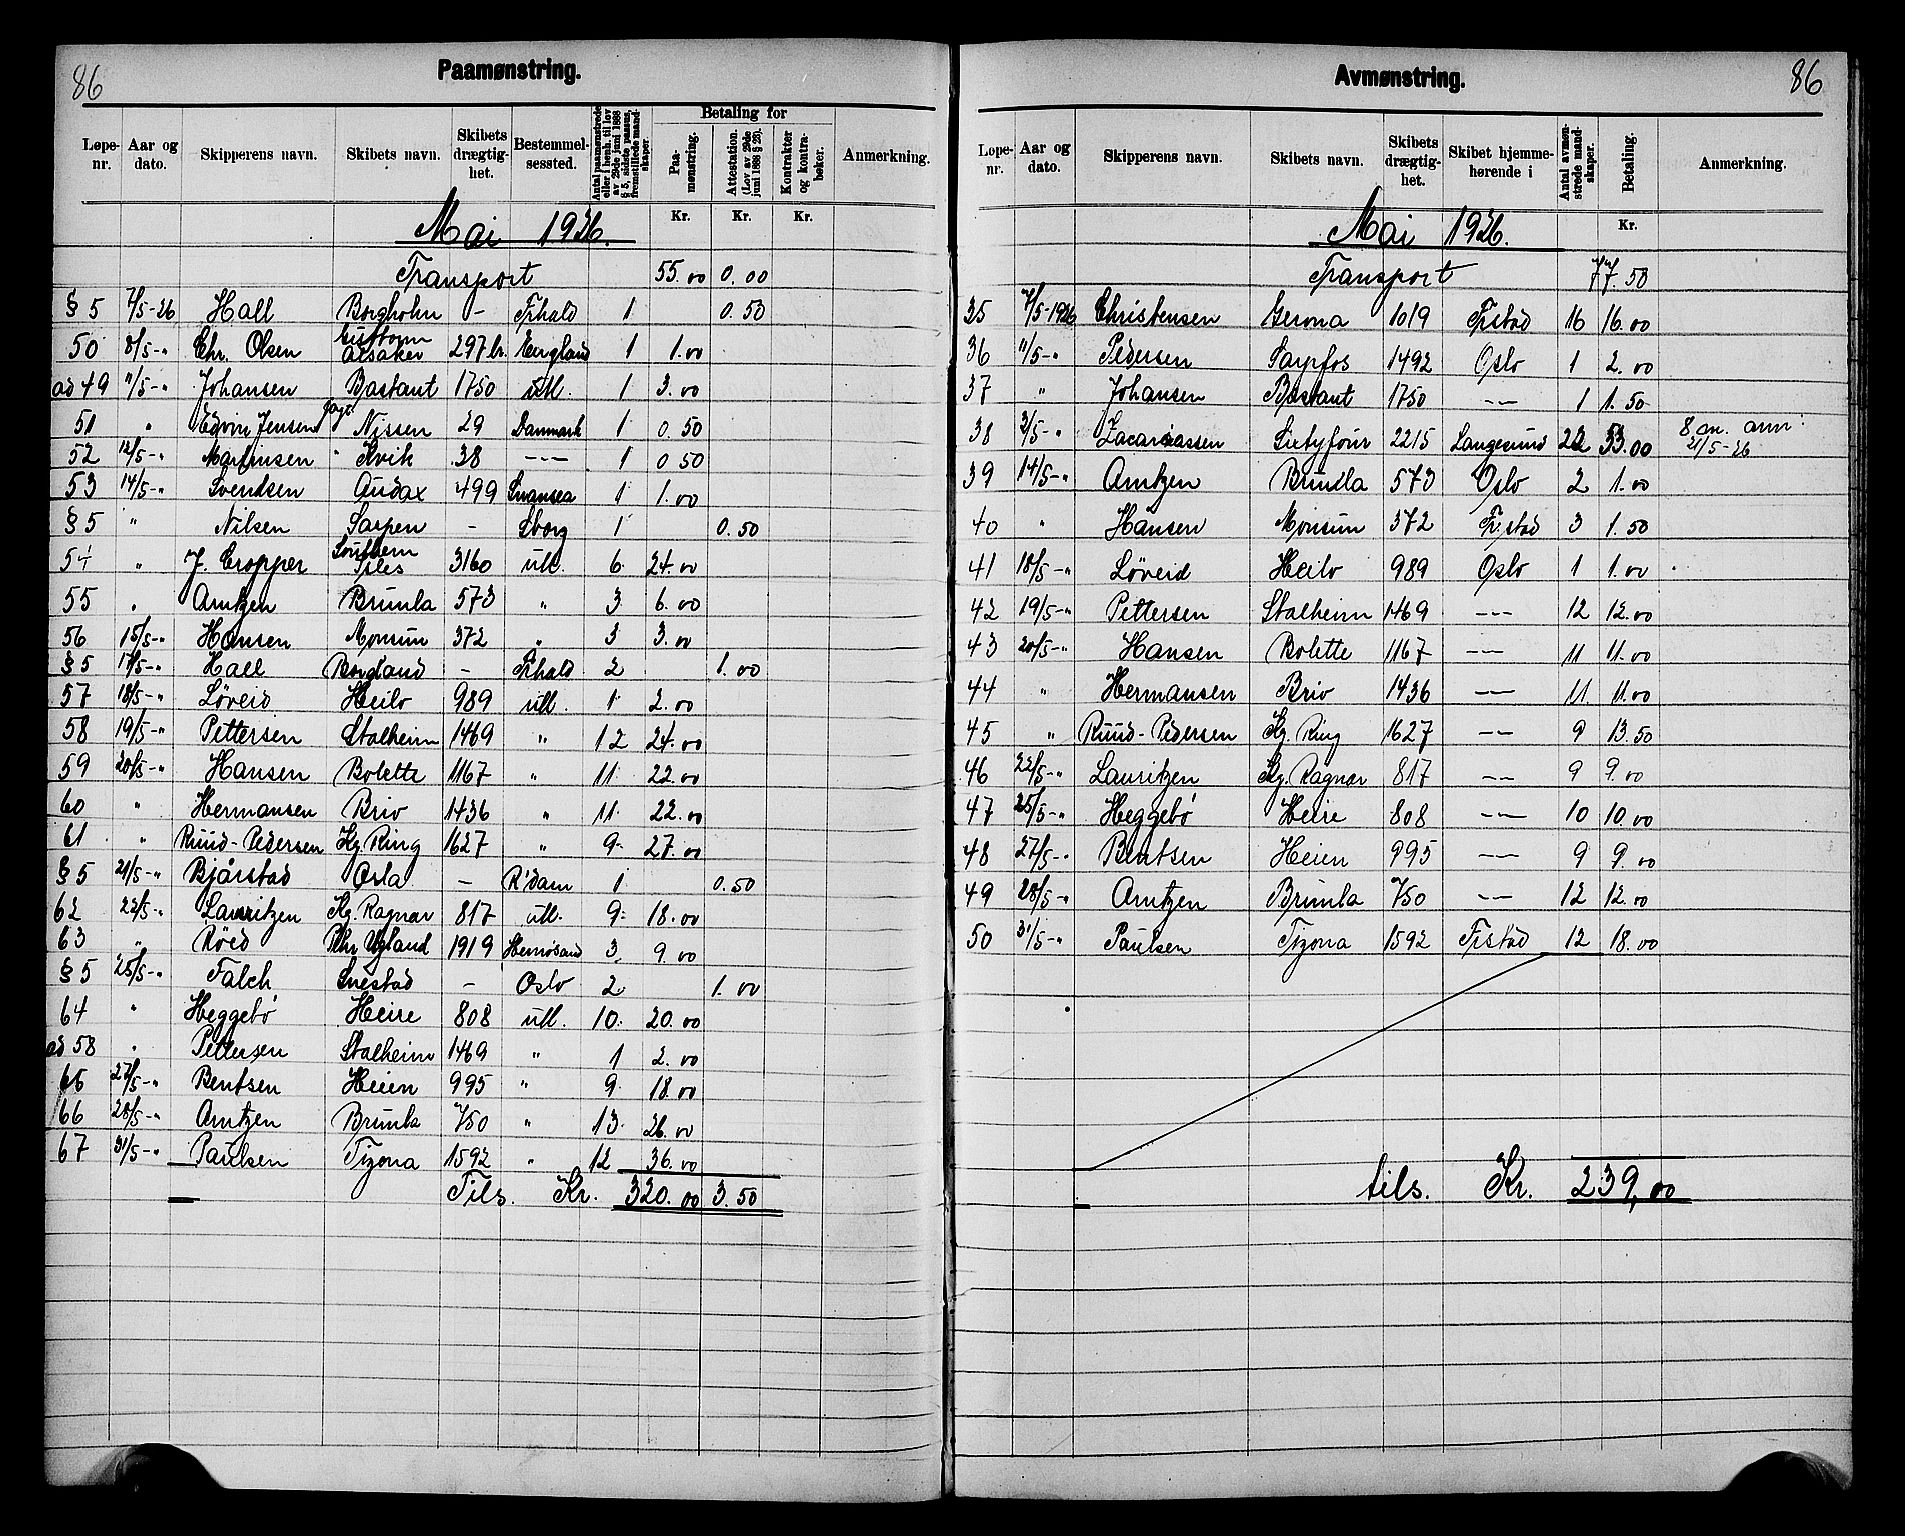 86
Paamønstring.
Løpe-nr. Aar og dato. Skipperens navn. Skibets navn. Skibets drægtig-het. Bestemmel-sessted. Antal paamønstrede eller i henh. til lov av 29de juni 1888 § 5, sidste passus, fremstillede mand-skaper. Betaling for Paa-mønstring. Attestation. (Lov av 29de juni 1888 § 25). Kontrakter og kontra-bøker. Anmerkning.
Kr. Kr. Kr.
Mai 1926.
Transport 55.00 0.00
§ 5 7/5-26 Hall Borgholm - Frhald 1 0.50
50 8/5-" Chr. Olsen 297 br. England 1 1.00
ad 49 11/5-" Johansen Bastant 1750 utl. 1 3.00
51 " Edvin Jensen Nissen 29 Danmark 1 0.50
52 12/5-" Martinsen Kvik 38 --- 1 0.50
53 14/5-" Svendsen Audax 499 Swansea 1 1.00
§ 5 " Nilsen Sarpen - Sborg 1 0.50
54 " J. Cropper Southern Isles 3160 utl. 6 24.00
55 " Arntzen Brumla 573 " 3 6.00
56 15/5-" Hansen Monsun 372 " 3 3.00
§ 5 17/5-" Hall Borgland - Frhald 2 1.00
57 18/5-" Løveid Heilo 989 utl. 1 2.00
58 19/5-" Pettersen Stalheim 1469 " 12 24.00
59 20/5-" Hansen Bolette 1167 " 11 22.00
60 " Hermansen Brio 1436 " 11 22.00
61 " Ruud-Pedersen Kg. Ring 1627 " 9 27.00
§ 5 21/5-" Bjårstad Osla - R'dam 1 0.50
62 22/5-" Lauritzen Kg. Ragnar 817 utl. 9 18.00
63 " Røed Ugland 1919 Hernøsand 3 9.00
§ 5 25/5-" Falch Snestad - Oslo 2 1.00
64 " Heggebø Heire 808 utl. 10 20.00
ad 58 " Pettersen Stalheim 1469 " 1 2.00
65 27/5-" Bentsen Heien 995 " 9 18.00
66 28/5-" Arntzen Brumla 750 " 13 26.00
67 31/5-" Paulsen Tizona 1592 " 12 36.00
Tils. Kr. 320.00 3.50
86
Avmønstring.
Løpe-nr. Aar og dato. Skipperens navn. Skibets navn. Skibets drægtig-het. Skibet hjemme-hørende i Antal avmøn-strede mand-skaper. Betaling. Anmerkning.
Kr.
Mai 1926.
Transport 77.50
35 7/5-1926 Christensen Gerona 1019 Frstad 16 16.00
36 11/5-" Pedersen Sarpfos 1492 Oslo 1 2.00
37 " Johansen Bastant 1750 --- 1 1.50
38 Zacariassen Sixtyfour 2215 Langesund 22 53.00 8 m. ann. 21/5-26
39 14/5-" Arntzen Brumla 573 Oslo 2 1.00
40 " Hansen Monsun 372 Frstad 3 1.50
41 18/5-" Løveid Heilo 989 Oslo 1 1.00
42 19/5-" Pettersen Stalheim 1469 --- 12 12.00
43 20/5-" Hansen Bolette 1167 --- 11 11.00
44 " Hermansen Brio 1436 --- 11 11.00
45 " Ruud-Pedersen Kg. Ring 1627 --- 9 13.50
46 22/5-" Lauritzen Kg. Ragnar 817 --- 9 9.00
47 25/5-" Heggebø Heire 808 --- 10 10.00
48 27/5-" Bentsen Heien 995 --- 9 9.00
49 28/5-" Arntzen Brumla 750 --- 12 12.00
50 31/5-" Paulsen Tizona 1592 Frstad 12 18.00
tils. Kr. 239,00